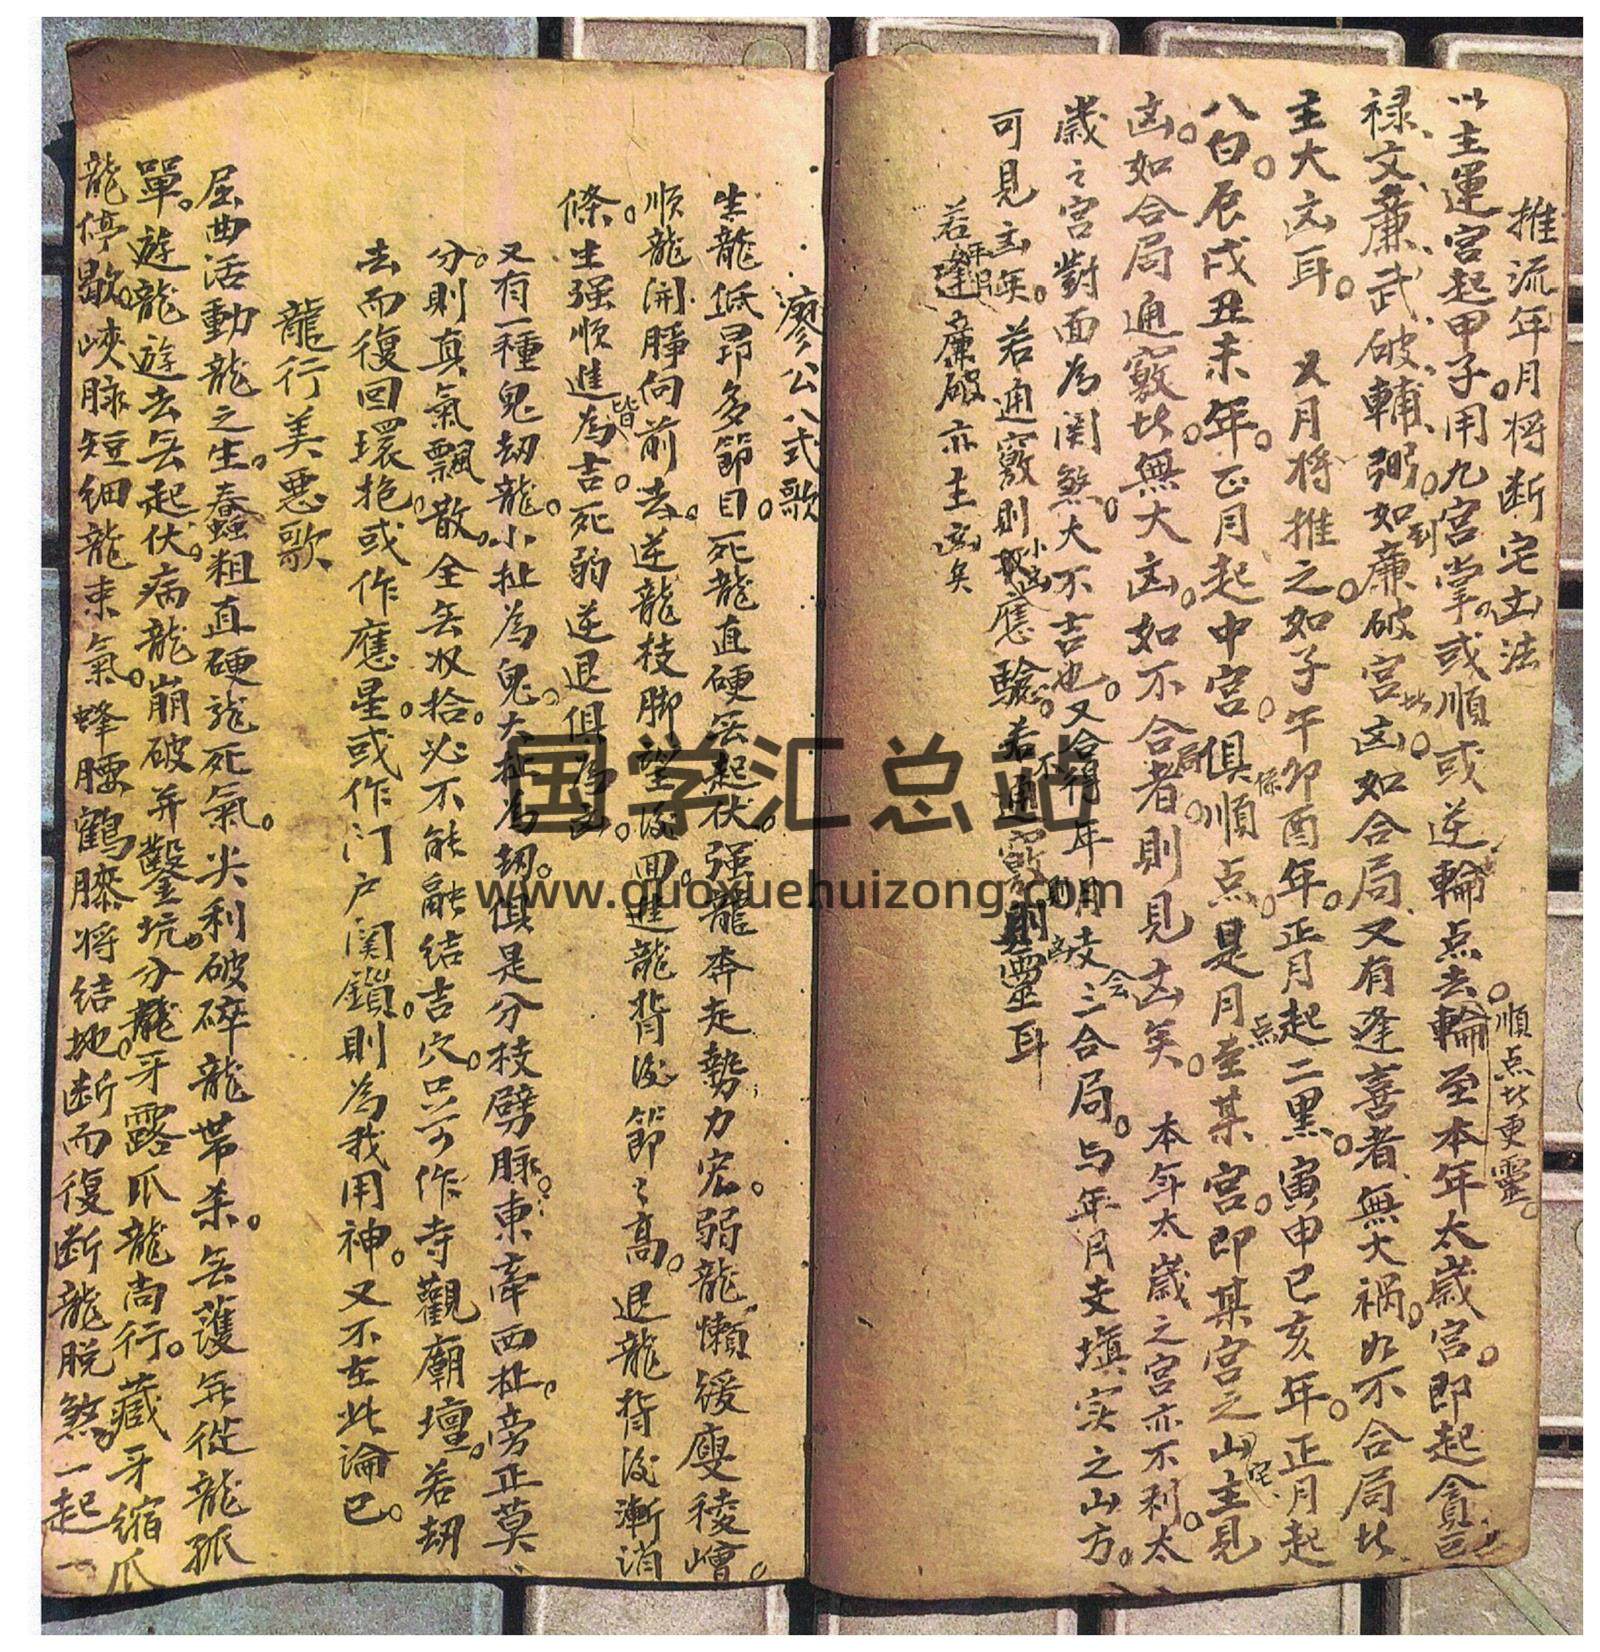 推流年月将断宅凶法
以主運宮起甲子用九宮掌或順或逆輪点去輪至本年太歲宮即起貪巨
順点比更靈
禄文廉武破輔弼如到廉破宮此凶如合局又有逢喜者無大禍如不合局比
主大凶耳 又月将推之如子午卯酉年正月起二黑寅申巳亥年正月起
八白辰戌丑未年正月起中宮俱順点是月点至某宮即某宮之山宅主見
凶如合局通竅比無大凶如不合局者則見凶矣 本年太歲之宮亦不利太
歲之宮對面為関煞大不吉也又合得年月支三合局与年月支填实之山方
可見凶矣若通竅則小凶應驗若不通竅則靈耳
若年月逢廉破亦主凶矣
廖公八式歌
生龍低昂多節目死龍直硬無起伏强龍奔走勢力宏弱龍懶緩瘦稜嶒
順龍開睜向前去逆龍枝脚望後回進龍背後節々高退龍背後漸消
條生强順進皆為吉死弱逆退俱為凶
又有一種鬼劫龍小扯為鬼大扯為劫俱是分枝劈脉東牽西扯旁正莫
分則真氣飄散全無收拾必不能融結吉穴只可作寺觀廟壇若劫
去而復回環抱或作應星或作门户関鎖則為我用神又不在此論已
龍行美惡歌
屈曲活動龍之生蠢粗直硬龍死氣尖利破碎龍带杀無護無從龍孤
單遊龍遊去無起伏病龍崩破并鑿坑分龍牙露爪龍尚行藏牙縮爪
龍停歇峽脉短細龍束氣蜂腰鶴膝将結地断而復断龍脱煞一起一
国学汇总站
www.guoxuehuizong.com